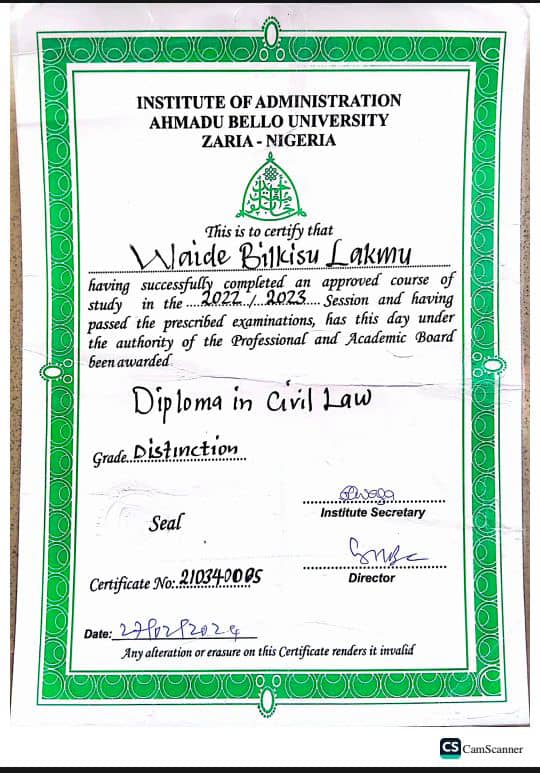 INSTITUTE OF ADMINISTRATION
AHMADU BELLO UNIVERSITY
ZARIA - NIGERIA
This is to certify that
Waide Bilkisu Lakmu
having successfully completed an approved course of
study in the ....2022../..2023.... Session and having
passed the prescribed examinations, has this day under
the authority of the Professional and Academic Board
been awarded
Diploma in Civil Law
Grade..Distinction
Institute Secretary
Seal
Director
Certificate No:.210340065
Date: 27/02/2024
Any alteration or erasure on this Certificate renders it invalid
CS CamScanner